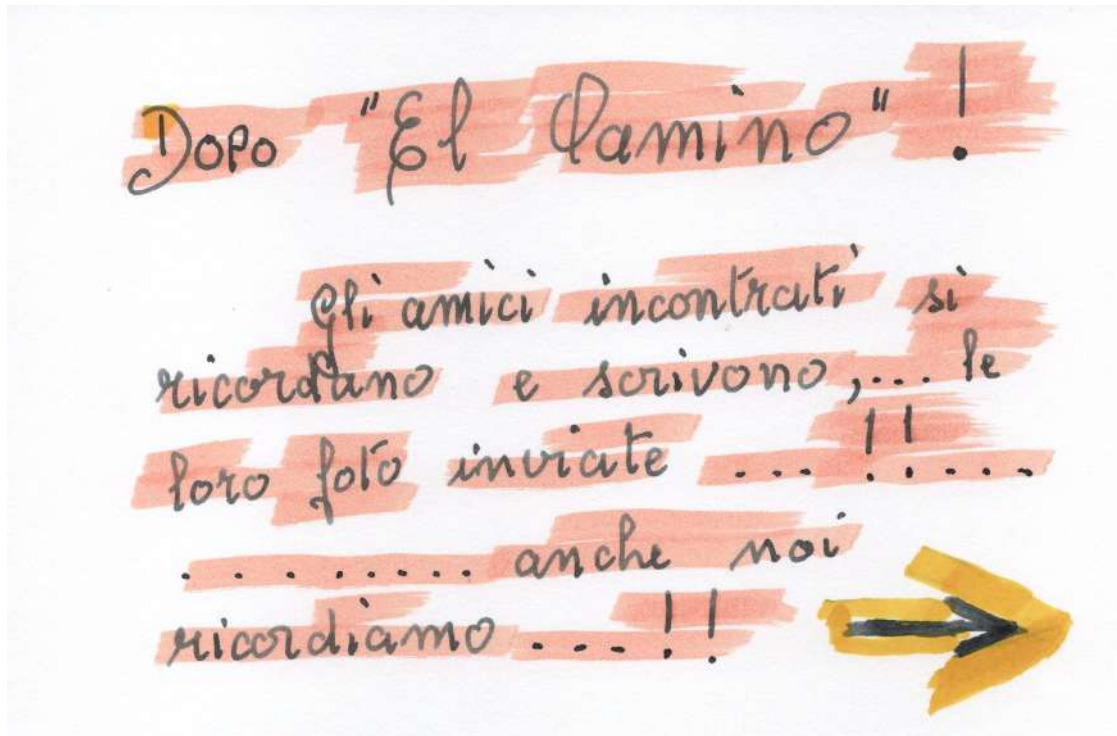 Dopo "El Camino" !
Gli amici incontrati si
ricordano e scrivono,... le
loro foto inviate ...!!....
........ anche noi
ricordiamo ...!!